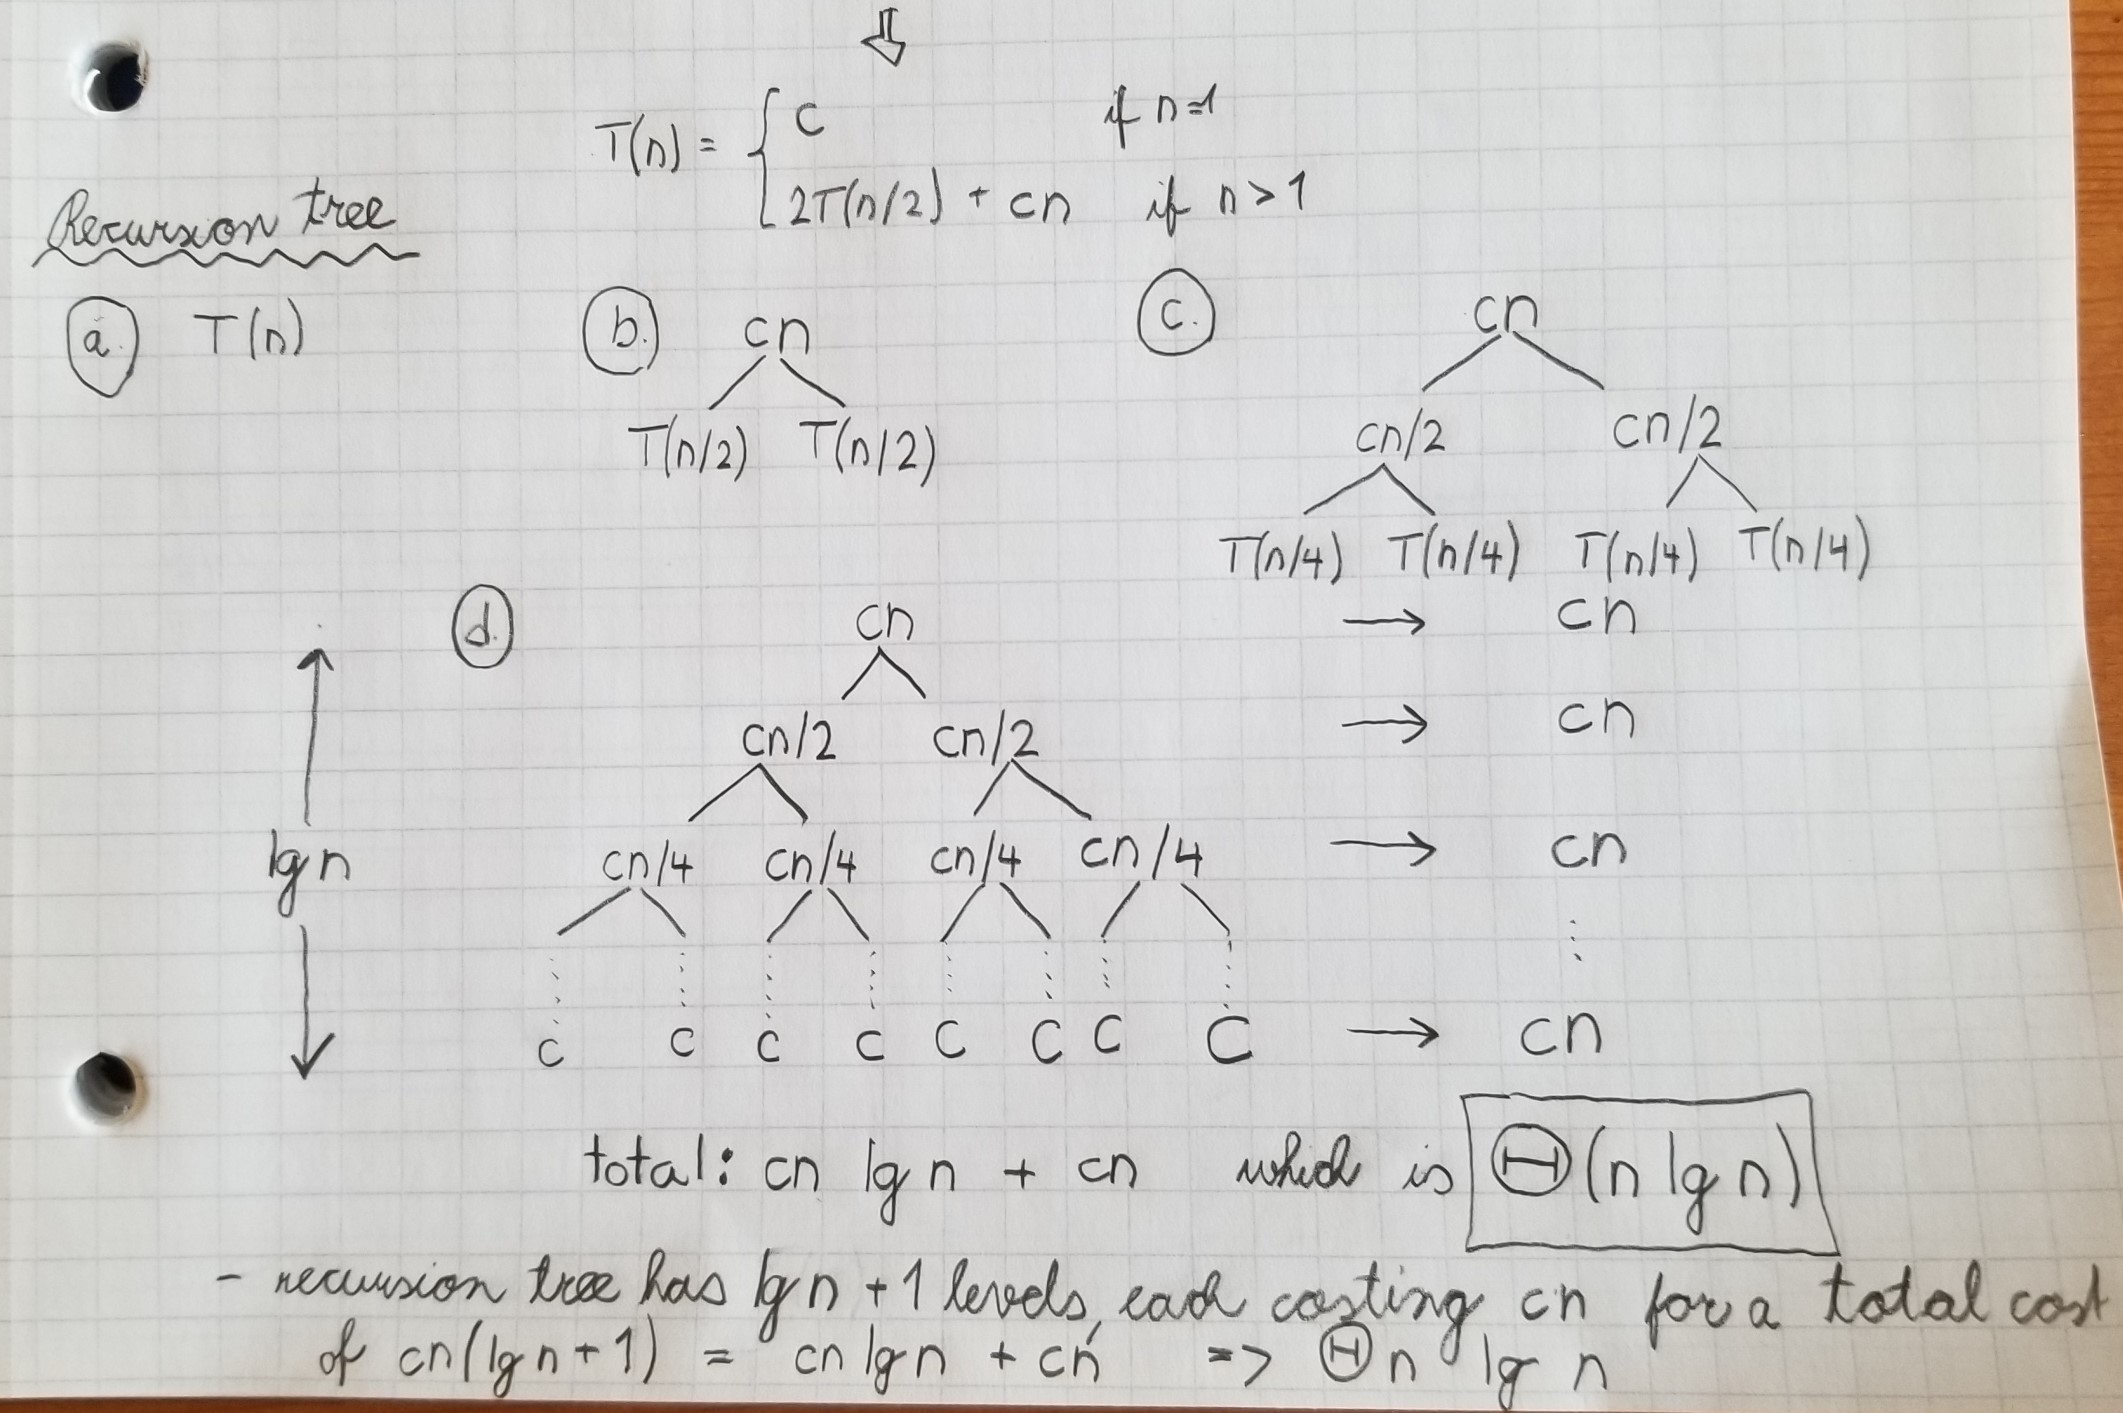 T(n) = { c if n=1
2T(n/2) + cn if n > 1
Recursion tree
a. T(n)
b. cn
T(n/2) T(n/2)
c. cn
cn/2 cn/2
T(n/4) T(n/4) T(n/4) T(n/4)
d. cn → cn
cn/2 cn/2 → cn
lg n
cn/4 cn/4 cn/4 cn/4 → cn
c c c c c c c c → cn
total: cn lg n + cn which is Θ(n lg n)
- recursion tree has lg n + 1 levels, each costing cn for a total cost
of cn(lg n + 1) = cn lg n + cn => Θ n lg n